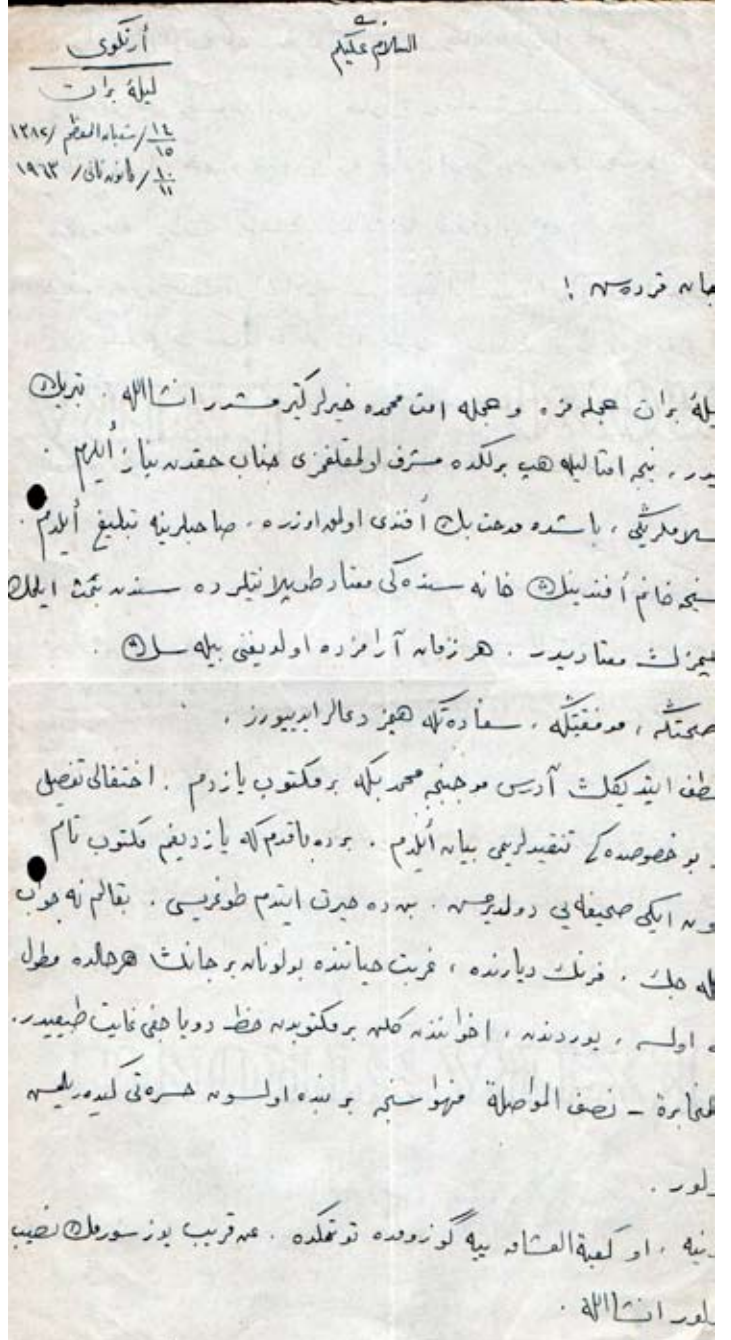 السلام عليكم
أرنكوى
ليلۀ برات
١٤/١٥ / شعبان المعظم / ١٣٨٢
١٠/١١ / كانون ثانى / ١٩٦٣
جان قردشم !
ليلۀ برات هجله مزه و هجله امت محمده خيرلر كتيرمشدر انشاالله . تبريك
ايدر ، نيجه امثاليله هپ برلكده مشرف اولمقلغمزى جناب حقدن نياز أيلرم .
سلاملريڭى ، باشده مدحت بك أفندى اولمق اوزره ، صاحبلرينه تبليغ أيلدم .
خانم أفندينڭ خانه سنده كى معتاد طوپلانتيلرده سندن بحث ايلمك
معتاديدر . هر زمان آرامزده اولديغنى بيله سڭ .
صحتڭه ، موفقيتڭه ، سعادتڭه هپمز دعالر ايدييورز .
لطف ايتديكڭ آدرس موجبنجه محمد بكه بر مكتوب يازدم . احتفالى تفصيل
و بو خصوصده كى تنقيدلريمى بيان أيلدم . برده باقدم كه يازديغم مكتوب تام
اون ايكى صحيفه يى دولديرمش . بن ده حيرت ايتدم طوغريسى . بقالم نه جواب
كله جك . فرنك ديارنده ، غربت حياتنده بولونان بر جانڭ هر حالده مطول
ده اولسه ، يوردندن ، اخوانندن كلن بر مكتوبدن حظ دوياجغى غايت طبيعيدر .
المخابرة ــ نصف المواصلة فحواسنجه بر نبذه اولسون حسرتى كيدريلمش
اولور .
او كعبة العشاق بيله گوزومده توتمكده . عن قريب يوز سورمك نصيب
اولور انشاالله .